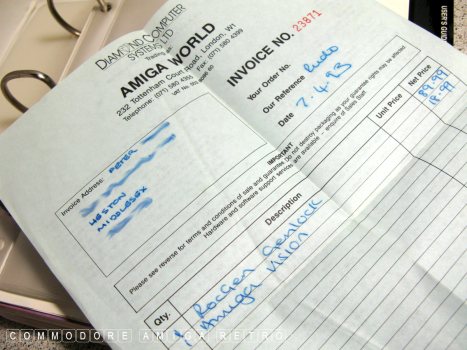 DIAMOND COMPUTER
SYSTEMS LTD
Trading as:
AMIGA WORLD
232 Tottenham Court Road, London, W1
Telephone: (071) 580 4355 Fax (071) 580 4399
VAT No.
INVOICE NO. 23871
Your Order No.
Our Reference Ludo
Date 7.4.93
Invoice Address: PETER
HESTON
MIDDLESEX
IMPORTANT
Do not destroy packaging as your guarantee rights may be affected
Please see reverse for terms and conditions of sale and guarantee
Hardware and software support services are available - enquire of Sales Staff
Qty. Description Unit Price Net Price
1 Rocgen Genlock 89.99
1 Amiga Vision 18.99
USER'S GUIDE
COMMODORE AMIGA RETRO